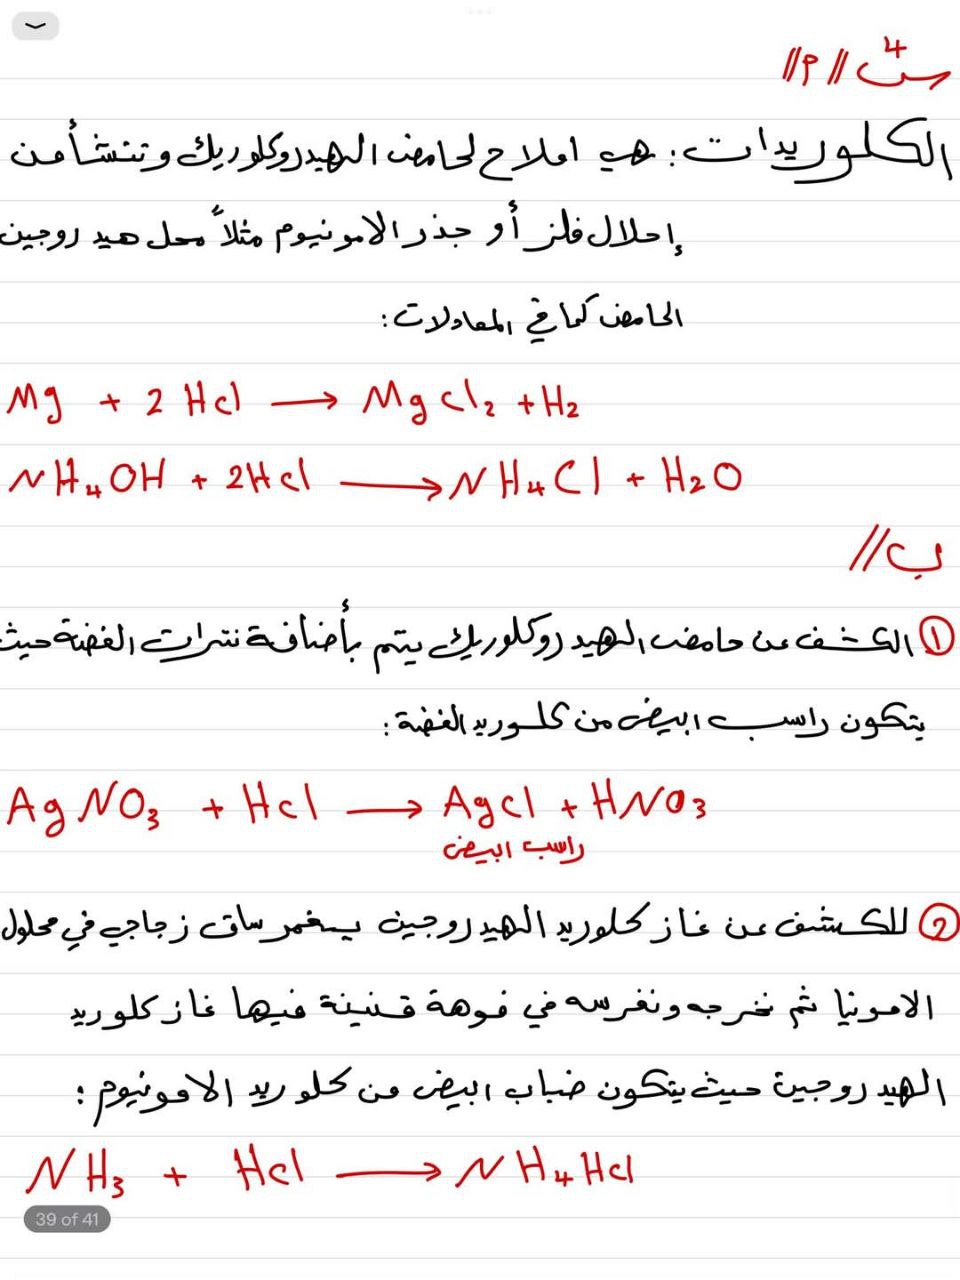 س٤ // م //
الكلوريدات: هي املاح لحامض الهيدروكلوريك وتنشأ من
إحلال فلز أو جذر الامونيوم مثلاً محل هيدروجين
الحامض كما في المعادلات:
Mg + 2 Hcl → Mg cl₂ + H₂
NH₄OH + 2Hcl → NH₄Cl + H₂O
ب //
① الكشف عن حامض الهيدروكلوريك يتم بأضافة نترات الفضة حيث
يتكون راسب ابيض من كلوريد الفضة:
AgNO₃ + Hcl → Agcl + HNO₃
راسب ابيض
② للكشف عن غاز كلوريد الهيدروجين يغمر ساق زجاجي في محلول
الامونيا ثم نخرجه ونغرسه في فوهة قنينة فيها غاز كلوريد
الهيدروجين حيث يتكون ضباب ابيض من كلوريد الامونيوم:
NH₃ + Hcl → NH₄Hcl
39 of 41